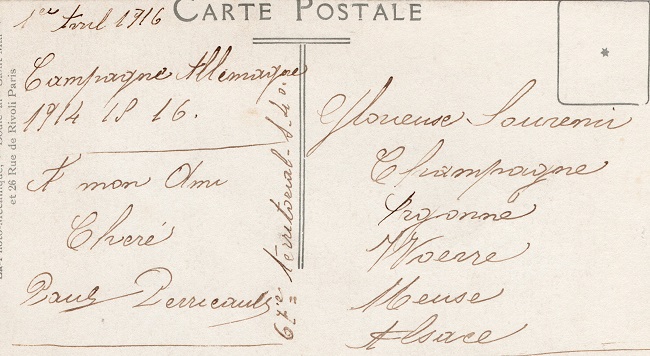 CARTE POSTALE
1er Avril 1916
Campagne Allemagne
1914 15 16.
A mon Ami
Cheré
Paul Perricault
67e = territorial
Glorieuse Souvenir
Champagne
Argonne
Woerre
Meuse
Alsace
et 26 Rue de Rivoli Paris